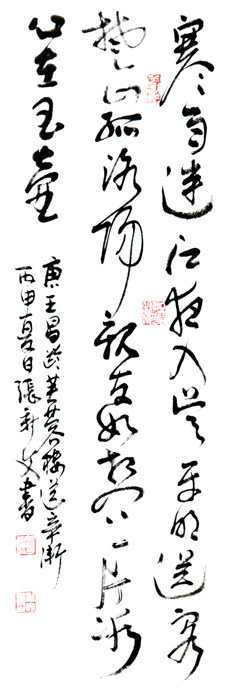 寒雨連江夜入吳平明送客
楚山孤洛陽親友如相問一片冰
心在玉壺
唐王昌齡芙蓉樓送辛漸
丙申夏日張新文書